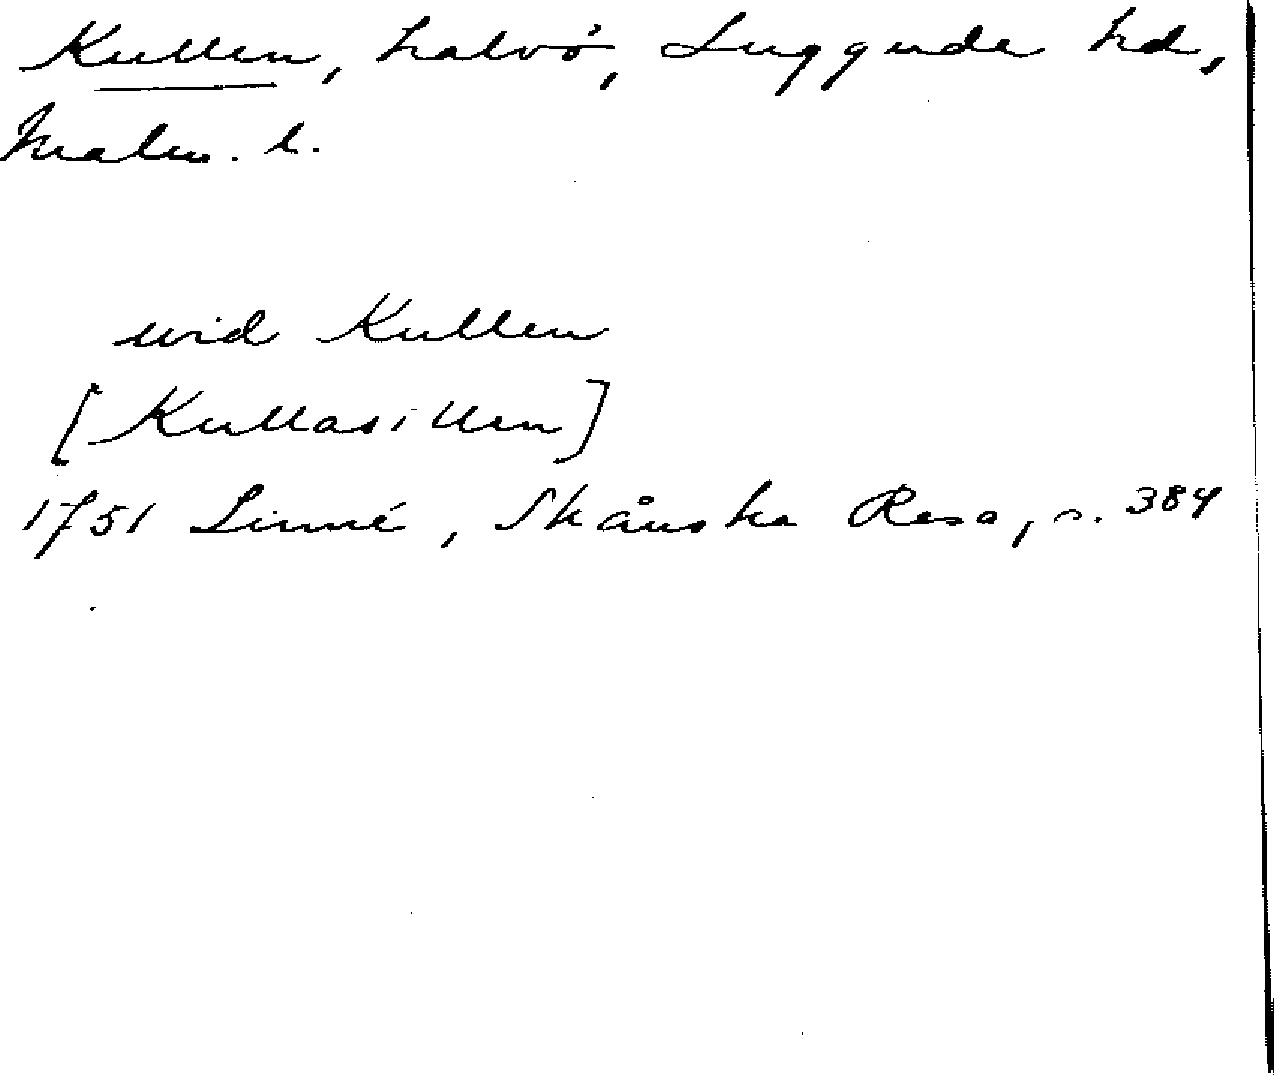 Kullen, halvö, Luggude hd,
Malm. l.
wid Kullen
[Kullasillen]
1751 Linné, Skånska Resa, s. 384